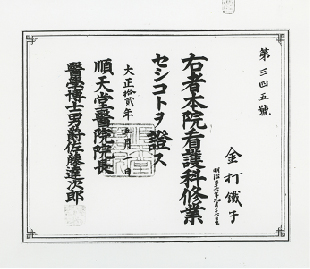 第三四五號
金打鐵子
右者本院看護科修業
セシコトヲ證ス
大正拾貳年 五月一日
順天堂醫院院長
醫學博士男爵佐藤達次郎